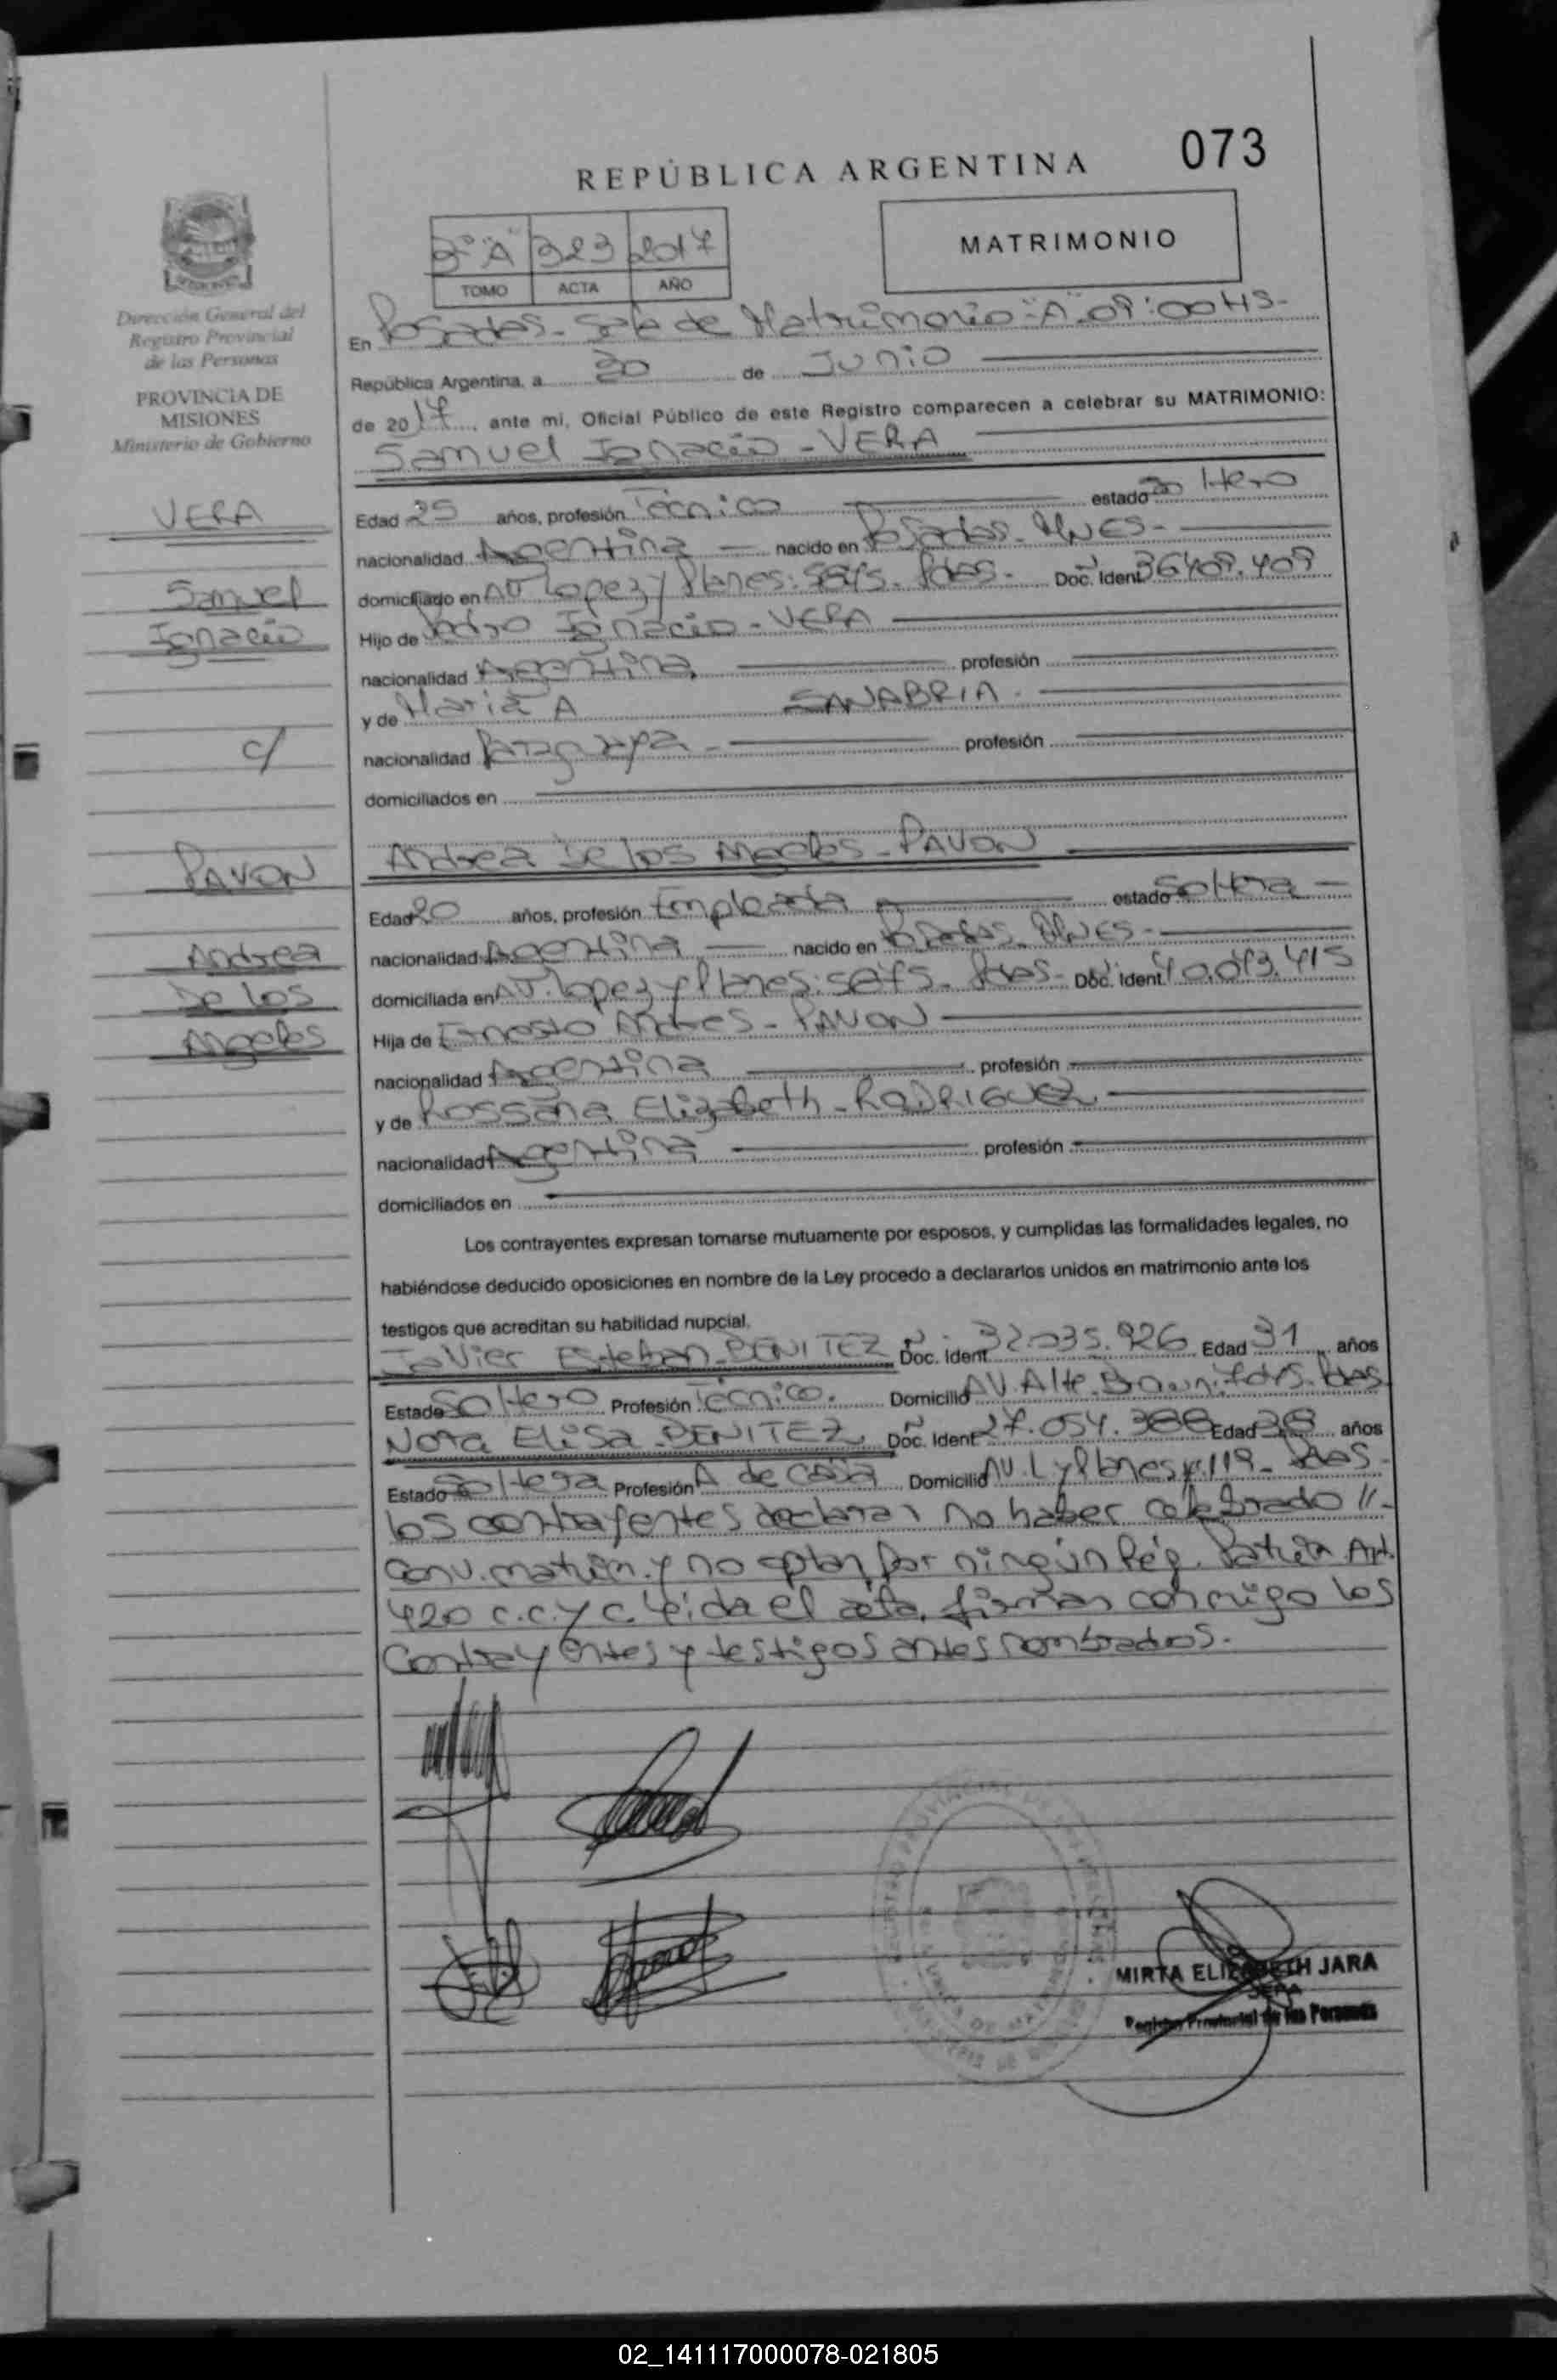 073
REPÚBLICA ARGENTINA
MATRIMONIO
2° "A" 323 2017
TOMO ACTA AÑO
Dirección General del
Registro Provincial
de las Personas
PROVINCIA DE
MISIONES
Ministerio de Gobierno
VERA
Samuel
Ignacio
c/
PAVON
Andrea
De los
Angeles
En Posadas - Sala de Matrimonio "A" 09:00 HS-
República Argentina, a 20 de Junio
de 2017, ante mi, Oficial Público de este Registro comparecen a celebrar su MATRIMONIO:
Samuel Ignacio - VERA
Edad 25 años, profesión Técnico estado soltero
nacionalidad Argentina nacido en Posadas - MNES-
domiciliado en AV Lopez y Planes: Doc. Ident
Hijo de Pedro Ignacio - VERA
nacionalidad Argentina profesión
y de Maria A SANABRIA -
nacionalidad Paraguaya - profesión
domiciliados en
Andrea De los Angeles - PAVON
Edad 20 años, profesión Empleada estado Soltera
nacionalidad Argentina nacido en Posadas - MNES-
domiciliada en AV. Lopez y Planes: Doc. Ident 40.013.415
Hija de Ernesto Andres - PAVON
nacionalidad Argentina profesión
y de Rossana Elizabeth - RODRIGUEZ
nacionalidad Argentina profesión
domiciliados en
Los contrayentes expresan tomarse mutuamente por esposos, y cumplidas las formalidades legales, no
habiéndose deducido oposiciones en nombre de la Ley procedo a declararlos unidos en matrimonio ante los
testigos que acreditan su habilidad nupcial.
Javier Esteban - BENITEZ Doc. Ident 32.035.926 Edad 31 años
Estado Soltero Profesión Técnico. Domicilio AV. Alte. Brown
Nora Elisa - BENITEZ Doc. Ident 27.054.388 Edad 38 años
Estado Soltera Profesión A de casa Domicilio AV. L y Planes 119 - Pdas -
los contrayentes declaran no haber celebrado //-
Conv. matrim. y no optan por ningún Rég. Patrim. Art.
420 c.c. y c. leída el acta, firman conmigo los
Contrayentes y testigos antes nombrados.
MIRTA ELIZABETH JARA
JEFA
Registro Provincial de las Personas
02_141117000078-021805